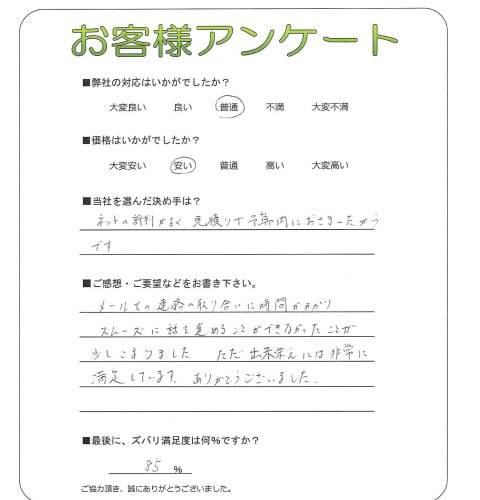 お客様アンケート
■弊社の対応はいかがでしたか？
大変良い 良い 普通 不満 大変不満
■価格はいかがでしたか？
大変安い 安い 普通 高い 大変高い
■当社を選んだ決め手は？
ネットの評判がよく、見積りで予算内におさまったから
です
■ご感想・ご要望などをお書き下さい。
メールでの連絡の取り合いに時間がかかり
スムーズに話を進めることができなかったことが
少しこまりました ただ出来栄えには非常に
満足しています。ありがとうございました。
■最後に、ズバリ満足度は何％ですか？
85 ％
ご協力頂き、誠にありがとうございました。